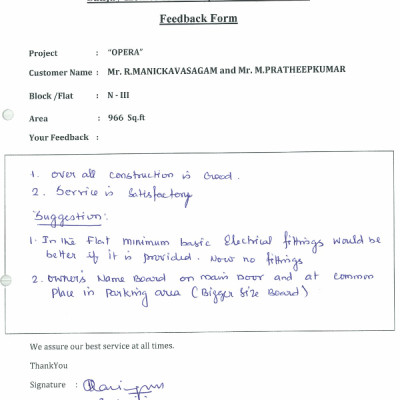 Feedback Form
Project : "OPERA"
Customer Name : Mr. R.MANICKAVASAGAM and Mr. M.PRATHEEPKUMAR
Block /Flat : N - III
Area : 966 Sq.ft
Your Feedback :
1. over all construction is Good.
2. Service is Satisfactory
Suggestion:
1. In the Flat minimum basic Electrical fittings would be
better if it is provided. Now no fittings
2. owner's Name Board on main Door and at common
Place in Parking area (Bigger Size Board)
We assure our best service at all times.
ThankYou
Signature :